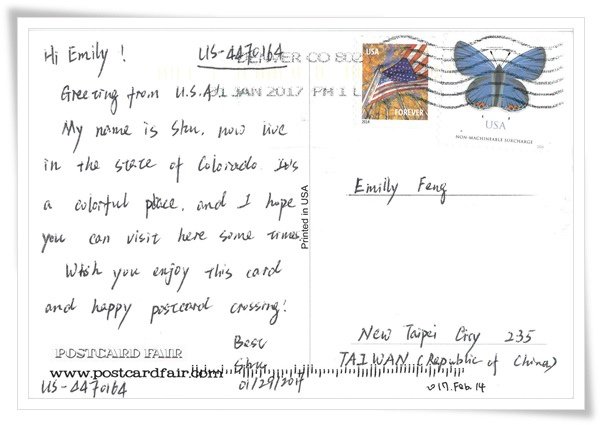 Hi Emily !
US-4470164
Greeting from U.S.A
My name is Shu, now live
in the state of Colorado. It's
a colorful place, and I hope
you can visit here some time.
Wish you enjoy this card
and happy postcard crossing!
Best
Shu
01/29/2017
POSTCARD FAIR
www.postcardfair.com
US-4470164
Printed in USA
DENVER CO
31 JAN 2017 PM 1 L
USA
FOREVER
2014
USA
NON-MACHINEABLE SURCHARGE
Emilly Feng
New Taipei City 235
TAIWAN (Republic of China)
2017. Feb. 14